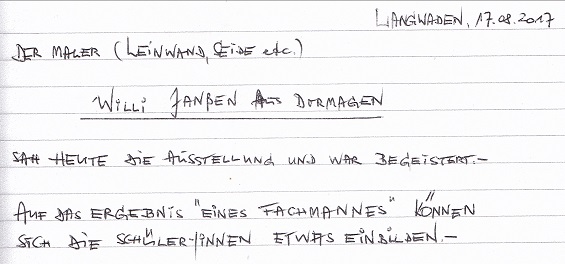 LANGWADEN, 17.08.2017
DER MALER (LEINWAND, SEIDE etc.)
WILLI JANßEN AUS DORMAGEN
SAH HEUTE DIE AUSSTELLUNG UND WAR BEGEISTERT.-
AUF DAS ERGEBNIS "EINES FACHMANNES" KÖNNEN
SICH DIE SCHÜLER-/INNEN ETWAS EINBILDEN.-